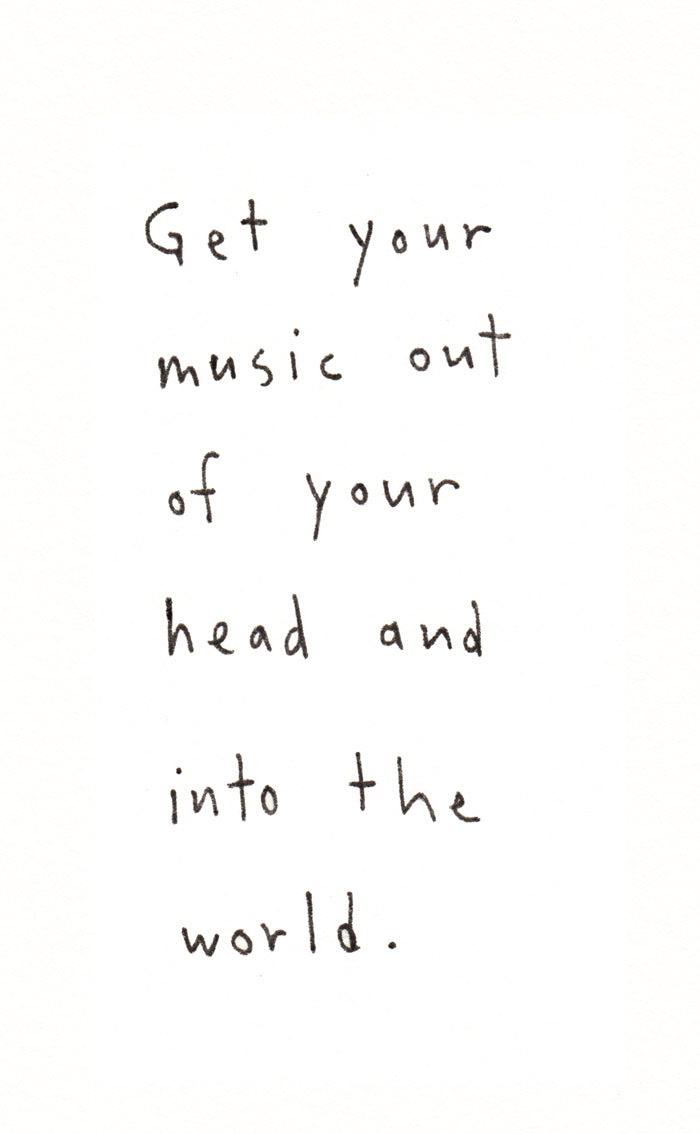 Get your
music out
of your
head and
into the
world.